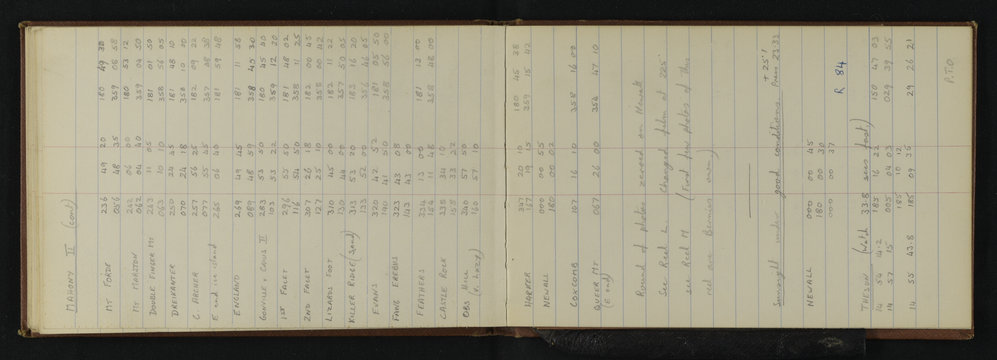 MAHONY II (cont)
MT FORDE 236 49 20 180 49 38
056 48 35 359 08 58
MT MARSTON 242 06 00 180 53 12
062 04 40 359 04 50
DOUBLE FINGER MT 263 11 05 181 01 50
10 10 358 56 05
DREIKANTER 250 24 45 181 48 10
070 24 18 358 10 00
C. ARCHER 257 56 25 182 09 22
077 55 45 357 08 38
E end ice island 265 06 40 181 59 48
ENGLAND 269 49 45 181 11 56
089 48 59 358 40 30
GONVILLE & CAIUS II 283 53 50 180 45 40
103 53 22 359 12 20
1ST FACET 296 55 50 181 48 02
116 54 50 358 11 25
2ND FACET 307 26 18 182 00 45
127 25 10 358 00 42
LIZARDS FOOT 310 45 00 182 11 22
130 44 00 357 50 05
KILLER RIDGE (Sand) 313 53 20 183 16 20
133 52 00 356 46 05
EVANS 320 42 52 181 05 50
140 41 50 358 56 00
FANG EREBUS 323 43 08
143 43 00
FEATHERS 334 13 00 181 12 00
154 11 48 358 48 00
CASTLE ROCK 338 34 10
158 33 22
OBS HILL 340 57 20
(v. hazy) 160 57 10
HARKER 347 20 10 180 45 28
167 19 15 359 15 42
NEWALL 000 00 55
180 00 02
COXCOMB 107 16 10 358 16 00
QUEER MT 067 26 00 352 47 10
(E end)
Round of photos zeroed on Newall
See Reel L. Changed film at 225°
see Reel M (First few photos of this
reel are Bernies own)
Sunsight under good conditions. Press 23.33 + 25°!
NEWALL 000 00 45
180 00 30
000 00 37
R 84
THEODON (Watch 33.8 secs fast)
14 54 14.2 185 16 22 150 47 03
14 57 15 005 04 03 029 39 55
185 10 12
14 55 43.8 185 09 35 29 26 21
P.T.O